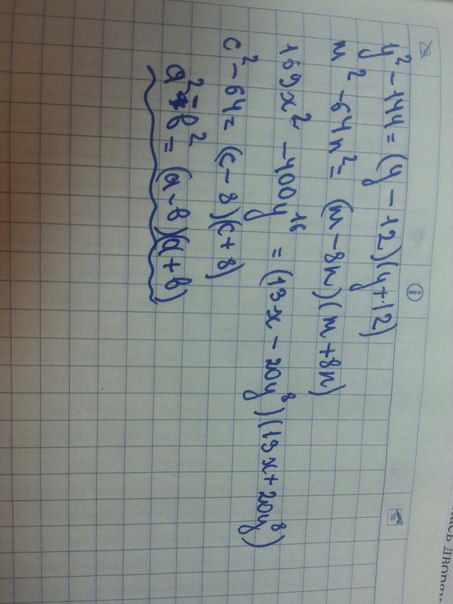 y² - 144 = (y - 12)(y + 12)
m² - 64n² = (m - 8n)(m + 8n)
169x² - 400y¹⁶ = (13x - 20y⁸)(13x + 20y⁸)
c² - 64 = (c - 8)(c + 8)
a² - b² = (a - b)(a + b)